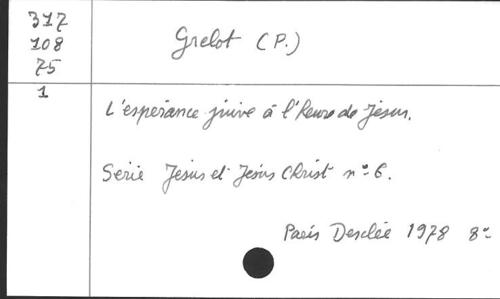 317
108
75
1
Grelot (P.)
L'espérance juive à l'heure de Jésus.
Série Jésus et Jésus Christ n° 6.
Paris Desclée 1978 8°